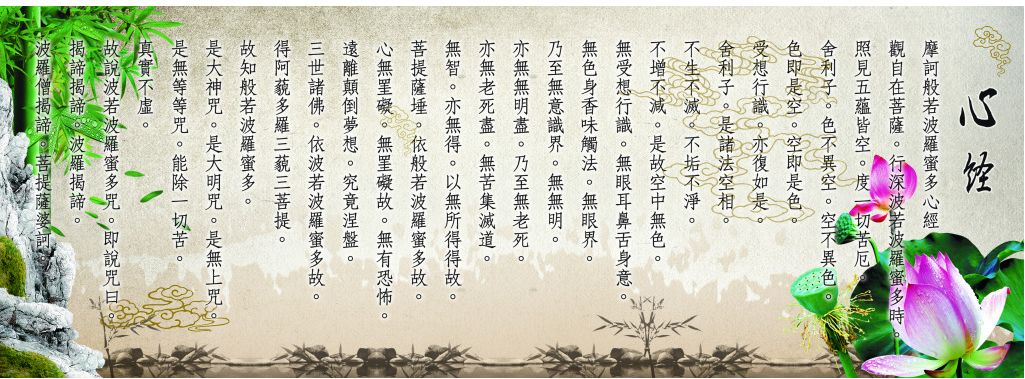 心经
摩訶般若波羅蜜多心經
觀自在菩薩。行深波若波羅蜜多時。
照見五蘊皆空。度一切苦厄。
舍利子。色不異空。空不異色。
色即是空。空即是色。
受想行識。亦復如是。
舍利子。是諸法空相。
不生不滅。不垢不淨。
不增不減。是故空中無色。
無受想行識。無眼耳鼻舌身意。
無色身香味觸法。無眼界。
乃至無意識界。無無明。
亦無無明盡。乃至無老死。
亦無老死盡。無苦集滅道。
無智。亦無得。以無所得得故。
菩提薩埵。依般若波羅蜜多故。
心無罣礙。無罣礙故。無有恐怖。
遠離顛倒夢想。究竟涅盤。
三世諸佛。依波若波羅蜜多故。
得阿藐多羅三藐三菩提。
故知般若波羅蜜多。
是大神咒。是大明咒。是無上咒。
是無等等咒。能除一切苦。
真實不虛。
故說波若波羅蜜多咒。即說咒曰。
揭諦揭諦。波羅揭諦。
波羅僧揭諦。菩提薩婆訶